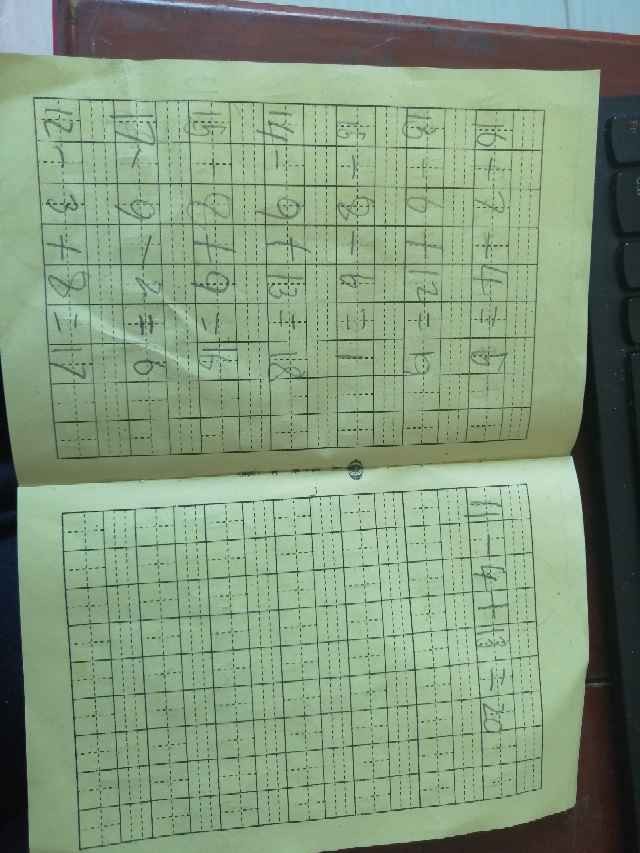 16 7 4 =
- 6 + 12 =
15 - 8 - 6 = 1
14 - 9 + 13 = 18
15 - 8 + 9 = 16
17 - 9 - 2 = 6
12 - 3 + 8 = 17
11 - 4 + 13 = 20